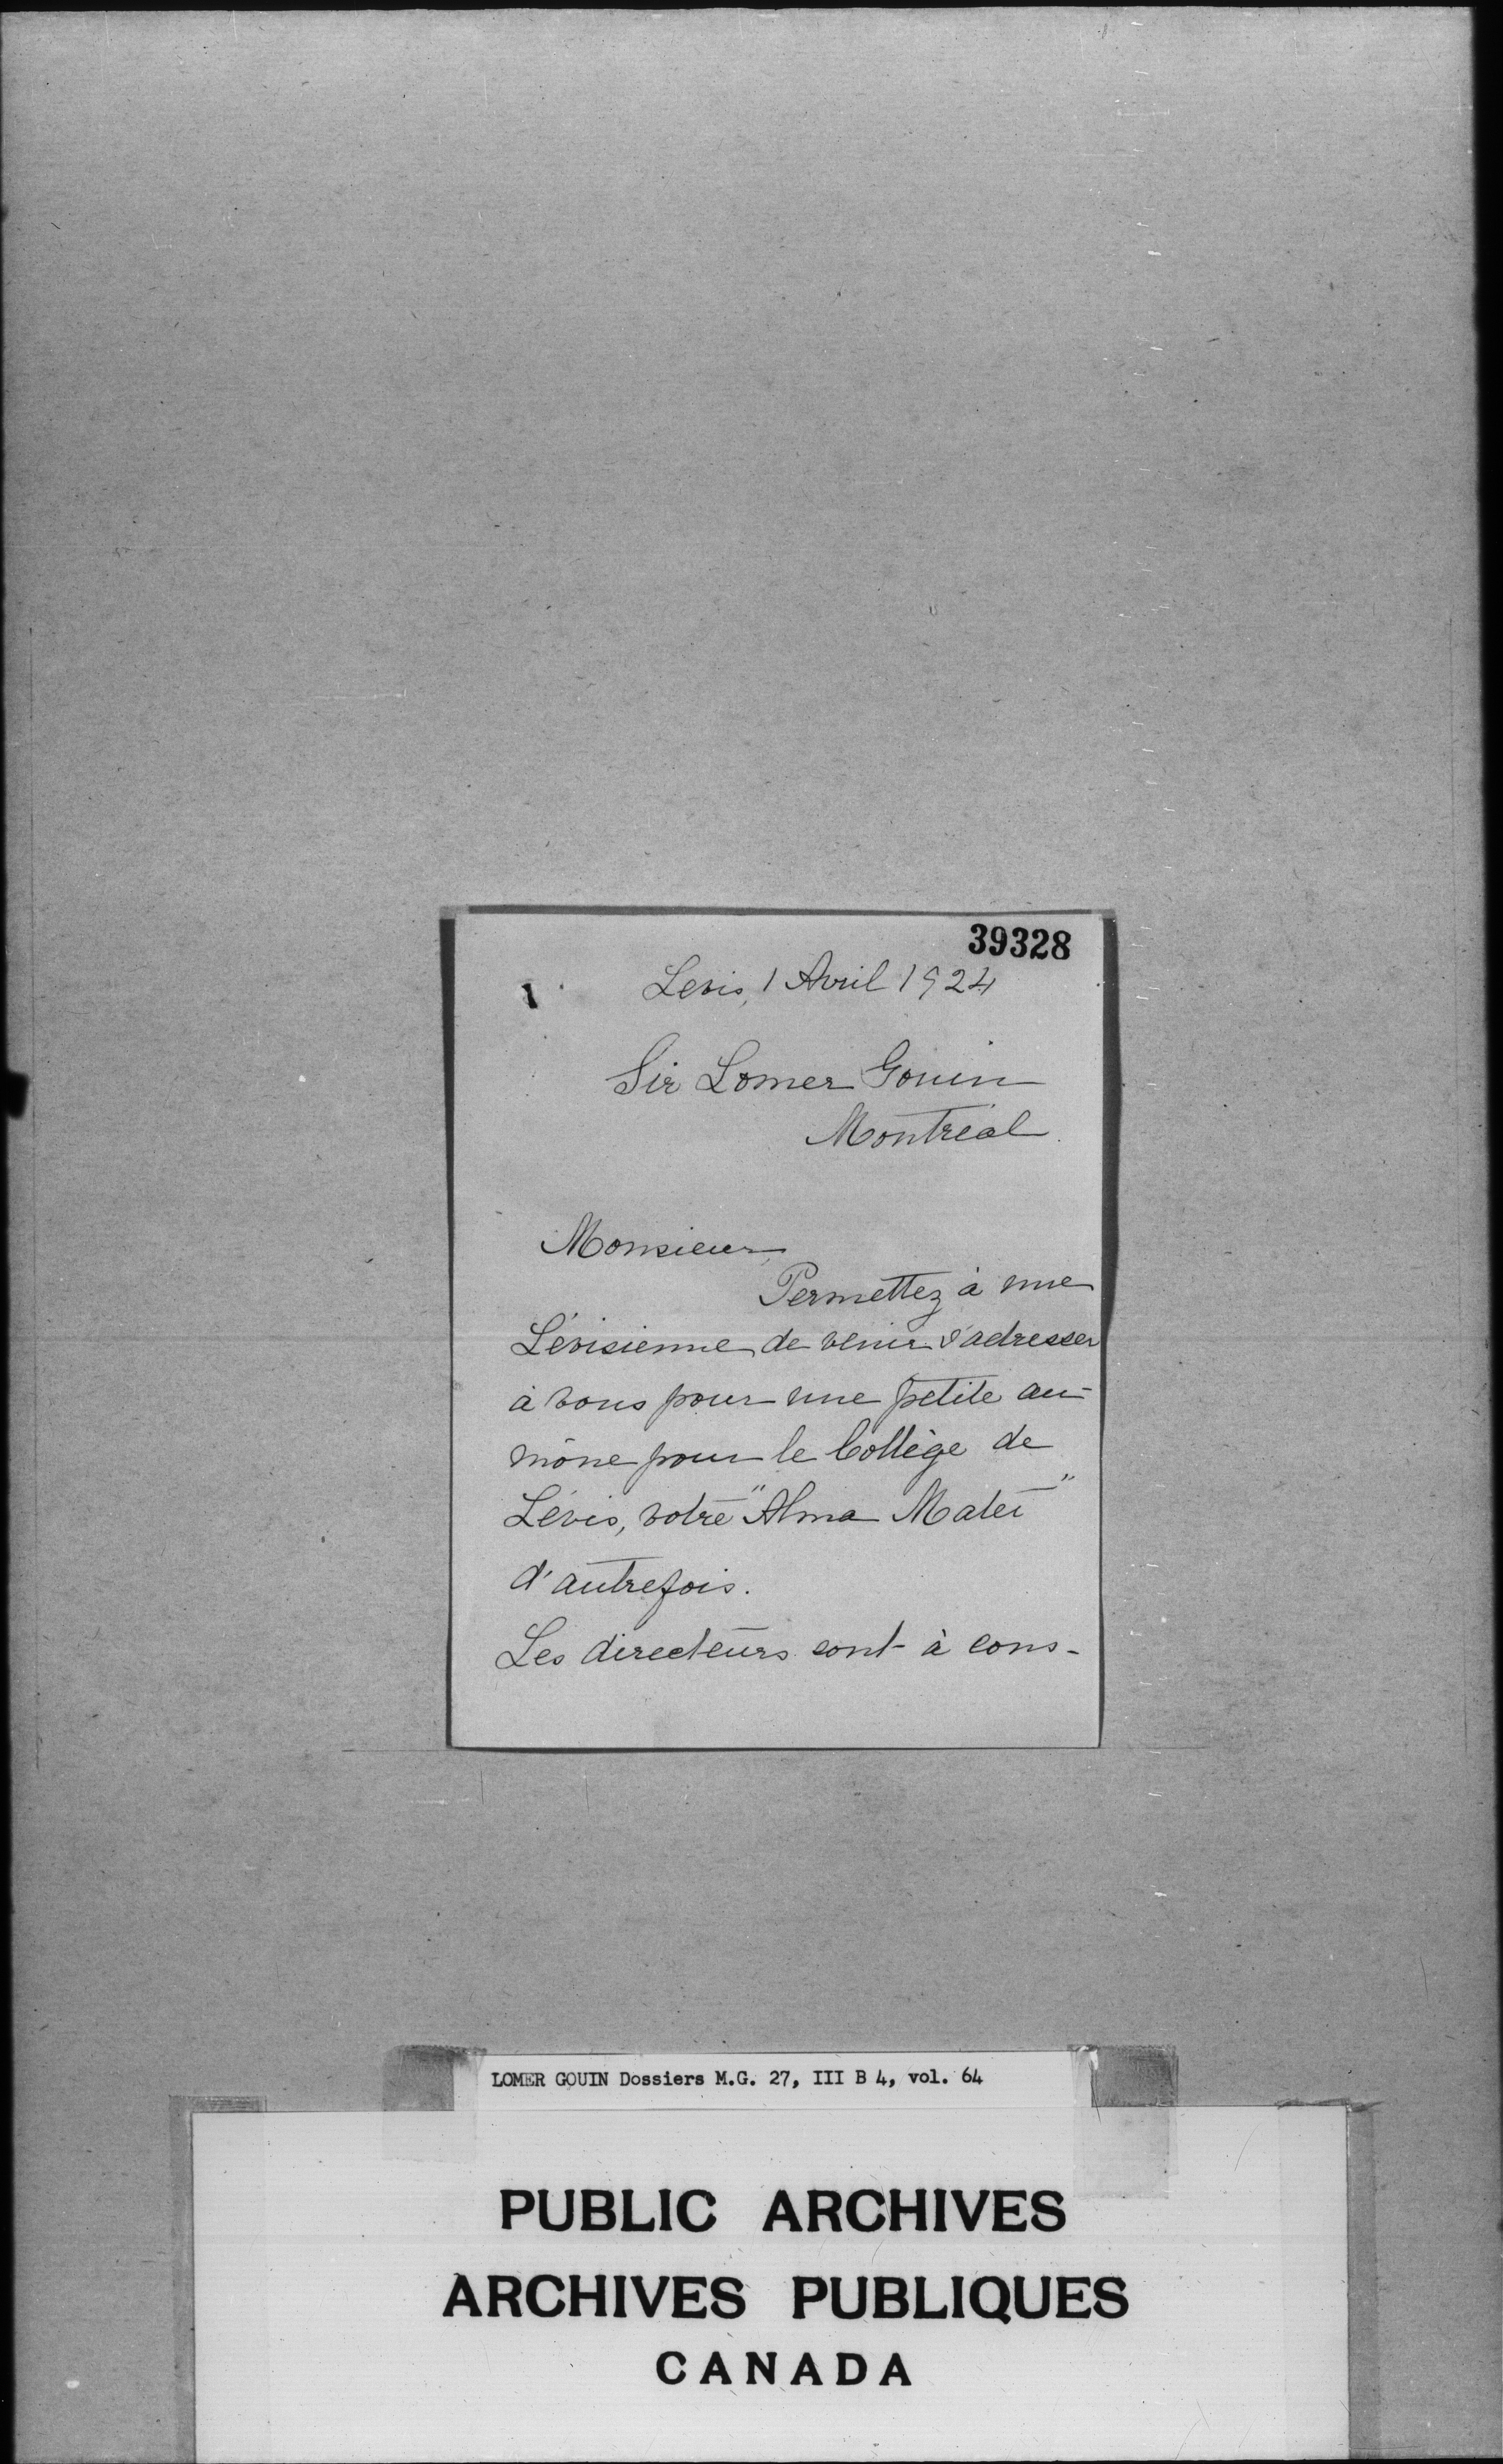 39328
1
Levis, 1 Avril 1924
Sir Lomer Gouin
Montréal
Monsieur,
Permettez à une
Lévisienne de venir s'adresser
à vous pour une petite au-
mône pour le Collège de
Lévis, votre "Alma Mater"
d'autrefois.
Les directeurs sont à cons-
LOMER GOUIN Dossiers M.G. 27, III B 4, vol. 64
PUBLIC ARCHIVES
ARCHIVES PUBLIQUES
CANADA